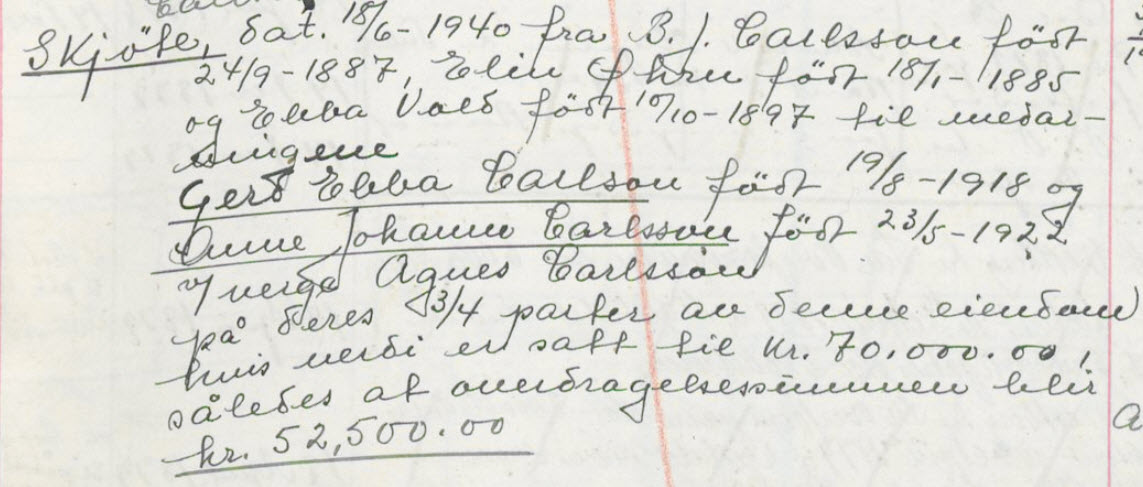 Skjöte, dat. 18/6-1940 fra B. J. Carlsson födt
24/9-1887, Elin Öhrn födt 18/1-1885
og Ebba Vold födt 10/10-1897 til medar-
vingene
Gerd Ebba Carlson födt 19/8-1918 og
Anne Johanne Carlsson födt 23/5-1922
v/verge Agnes Carlsson
på deres 3/4 parter av denne eiendom
hvis verdi er satt til kr. 70.000.00,
således at overdragelsessummen blir
kr. 52,500.00